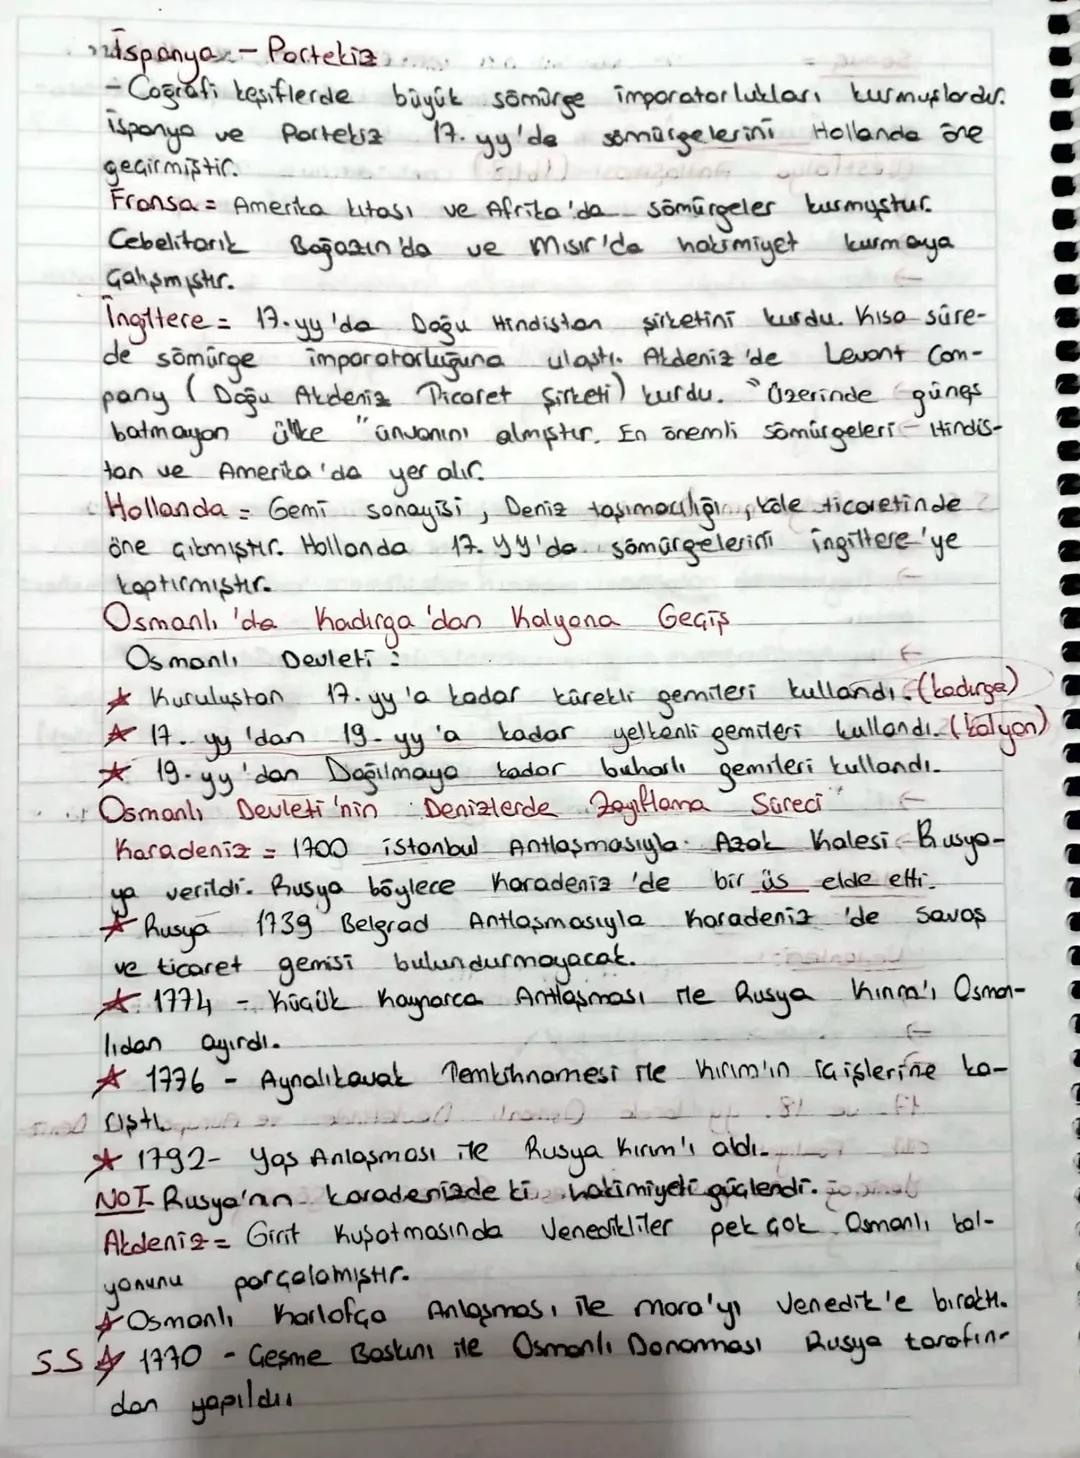 İspanya - Portekiz
- Coğrafi keşiflerde büyük sömürge imparatorlukları kurmuşlardır.
İspanya ve Portekiz 17. yy'da sömürgelerini Hollanda öne
geçirmiştir.
Fransa = Amerika kıtası ve Afrika'da sömürgeler kurmuştur.
Cebelitarık Boğazın'da ve Mısır'da hakimiyet kurmaya
Çalışmıştır.
İngiltere = 17. yy'da Doğu Hindistan şirketini kurdu. Kısa süre-
de sömürge imparatorluğuna ulaştı. Akdeniz'de Levant Com-
pany (Doğu Akdeniz Ticaret Şirketi) kurdu. "Üzerinde güneş
batmayan ülke" ünvanını almıştır. En önemli sömürgeleri - Hindis-
tan ve Amerika'da yer alır.
Hollanda = Gemi sanayisi, Deniz taşımacılığın, köle ticaretinde
öne çıkmıştır. Hollanda 17. yy'da sömürgelerini İngiltere'ye
kaptırmıştır.
Osmanlı'da Kadırga'dan Kalyona Geçiş
Osmanlı Devleti :
★ Kuruluştan 17. yy'a kadar kürekli gemileri kullandı. (kadırga)
★ 17. yy'dan 19. yy'a kadar yelkenli gemileri kullandı. (kalyon)
★ 19. yy'dan Dağılmaya kadar buharlı gemileri kullandı.
Osmanlı Devleti'nin Denizlerde Zayıflama Süreci
Karadeniz = 1700 İstanbul Antlaşmasıyla Azak Kalesi Rusya-
ya verildi. Rusya böylece Karadeniz'de bir üs elde etti.
★ Rusya 1739 Belgrad Antlaşmasıyla Karadeniz'de Savaş
ve ticaret gemisi bulundurmayacak.
★ 1774 - Küçük Kaynarca Antlaşması ile Rusya Kırım'ı Osman-
lıdan ayırdı.
★ 1776 - Aynalıkavak Temkihnamesi ile Kırım'ın iç işlerine ka-
rıştı.
★ 1792 - Yaş Anlaşması ile Rusya Kırım'ı aldı.
NOT Rusya'nın karadenizde ki hakimiyeti güçlendi.
Akdeniz = Girit Kuşatmasında Venedikliler pek çok Osmanlı kal-
yonunu parçalamıştır.
★ Osmanlı Karlofça Anlaşması ile mora'yı Venedik'e bıraktı.
S.S ★ 1770 - Çeşme Baskını ile Osmanlı Donanması Rusya tarafın-
dan yapıldı